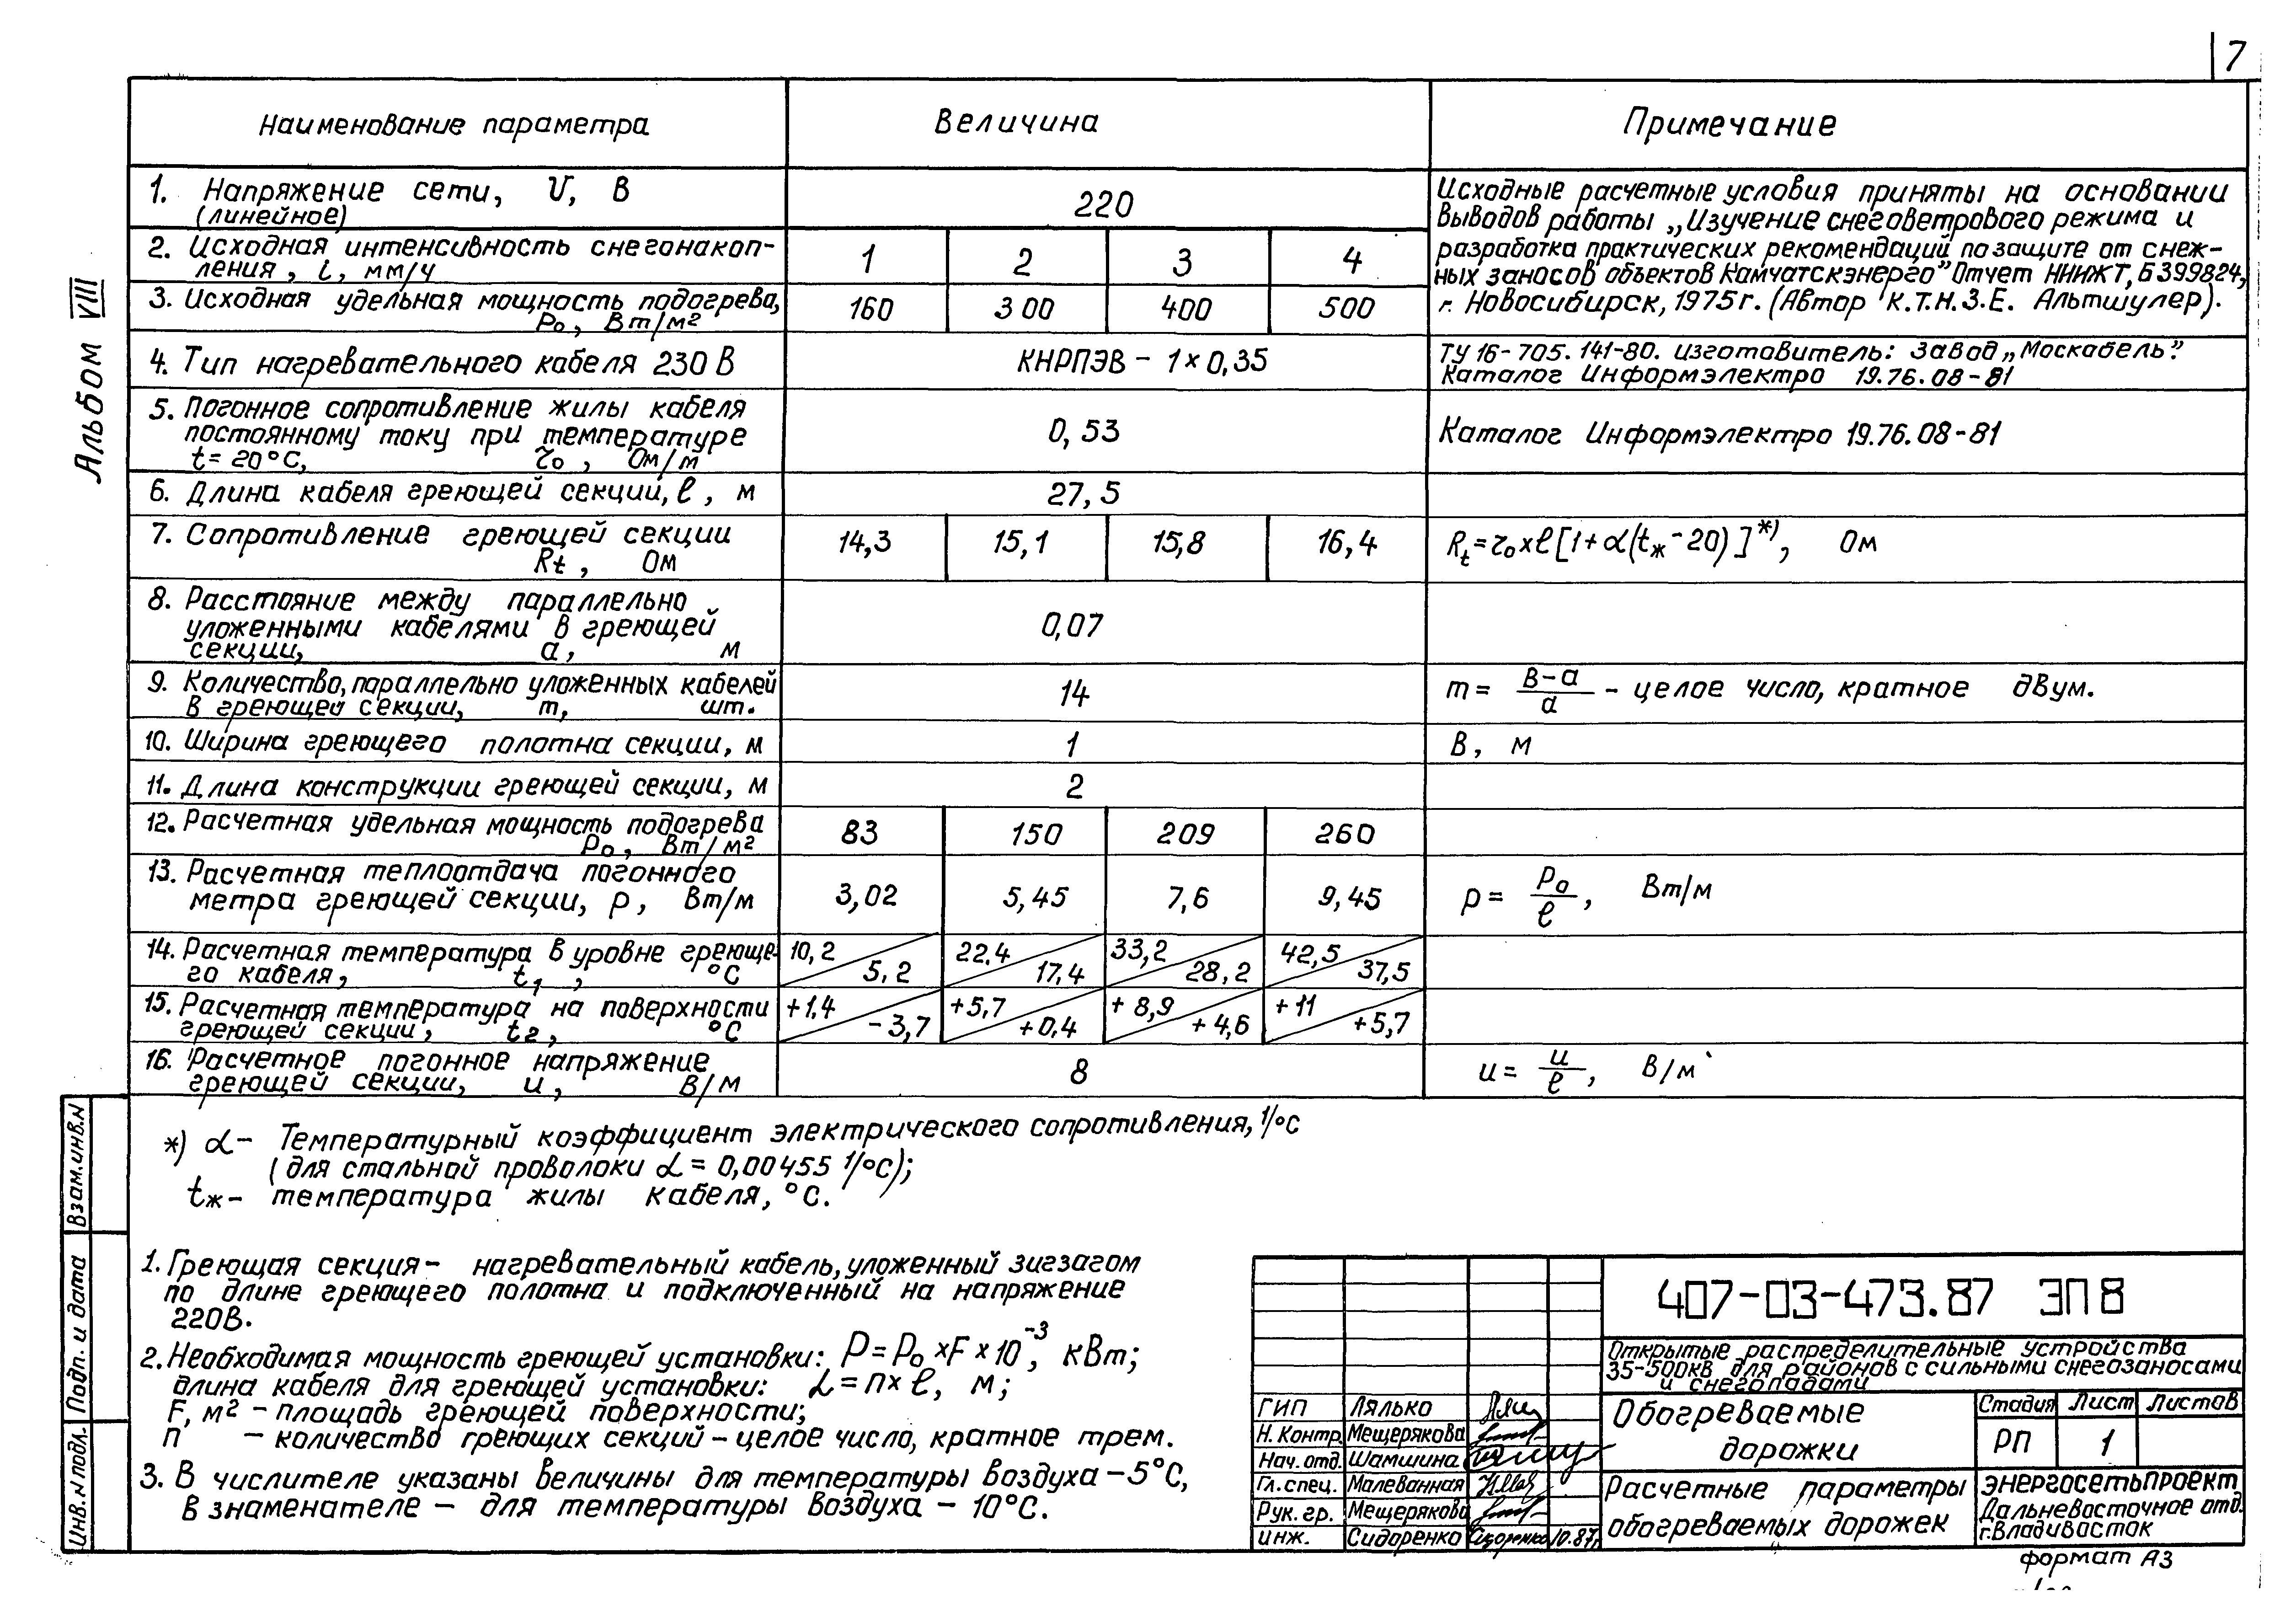 7
Альбом VIII
Наименование параметра
Величина
Примечание
1. Напряжение сети, U, В
(линейное)
220
Исходные расчетные условия приняты на основании
выводов работы „Изучение снеговетрового режима и
разработка практических рекомендаций по защите от снеж-
ных заносов объектов Камчатскэнерго" Отчет НИИЖТ, Б399824,
г. Новосибирск, 1975г. (Автор к.т.н. З.Е. Альтшулер).
2. Исходная интенсивность снегонакоп-
ления, i, мм/ч
1 2 3 4
3. Исходная удельная мощность подогрева,
Po, Вт/м²
160 300 400 500
4. Тип нагревательного кабеля 230 В
КНРПЭВ - 1×0,35
ТУ 16-705.141-80. Изготовитель: Завод „Москабель".
Каталог Информэлектро 19.76.08-81
5. Погонное сопротивление жилы кабеля
постоянному току при температуре
t=20°С, τo, Ом/м
0,53
Каталог Информэлектро 19.76.08-81
6. Длина кабеля греющей секции, ℓ, м
27,5
7. Сопротивление греющей секции
Rt, Ом
14,3 15,1 15,8 16,4
Rt=τo×ℓ[1+α(tж-20)]*), Ом
8. Расстояние между параллельно
уложенными кабелями в греющей
секции, а, м
0,07
9. Количество, параллельно уложенных кабелей
в греющей секции, m, шт.
14
m = В-а/а - целое число, кратное двум.
10. Ширина греющего полотна секции, м
1
В, м
11. Длина конструкции греющей секции, м
2
12. Расчетная удельная мощность подогрева
Ро, Вт/м²
83 150 209 260
13. Расчетная теплоотдача погонного
метра греющей секции, р, Вт/м
3,02 5,45 7,6 9,45
р = Ро/ℓ, Вт/м
14. Расчетная температура в уровне греюще-
го кабеля, t1, °С
10,2/5,2 22,4/17,4 33,2/28,2 42,5/37,5
15. Расчетная температура на поверхности
греющей секции, t2, °С
+1,4/-3,7 +5,7/+0,4 +8,9/+4,6 +11/+5,7
16. Расчетное погонное напряжение
греющей секции, u, В/м
8
u = u/ℓ, В/м
*) α - Температурный коэффициент электрического сопротивления, 1/°С
(для стальной проволоки α = 0,00455 1/°С);
tж - температура жилы кабеля, °С.
1. Греющая секция - нагревательный кабель, уложенный зигзагом
по длине греющего полотна и подключенный на напряжение
220В.
2. Необходимая мощность греющей установки: Р=Ро×F×10⁻³, кВт;
длина кабеля для греющей установки: L=n×ℓ, м;
F, м² - площадь греющей поверхности;
n - количество греющих секций - целое число, кратное трем.
3. В числителе указаны величины для температуры воздуха -5°С,
в знаменателе - для температуры воздуха - 10°С.
Взам.инв.N
Подп. и дата
Инв.N подл.
407-03-473.87 ЭП8
Открытые распределительные устройства
35-500кВ для районов с сильными снегозаносами
и снегопадами
ГИП Лялько
Н. Контр. Мещерякова
Нач. отд. Шамшина
Гл. спец. Малеванная
Рук. гр. Мещерякова
инж. Сидоренко Сидоренко 10.87г
Обогреваемые
дорожки
Стадия Лист Листов
РП 1
Расчетные параметры
обогреваемых дорожек
ЭНЕРГОСЕТЬПРОЕКТ
Дальневосточное отд.
г.Владивосток
формат А3